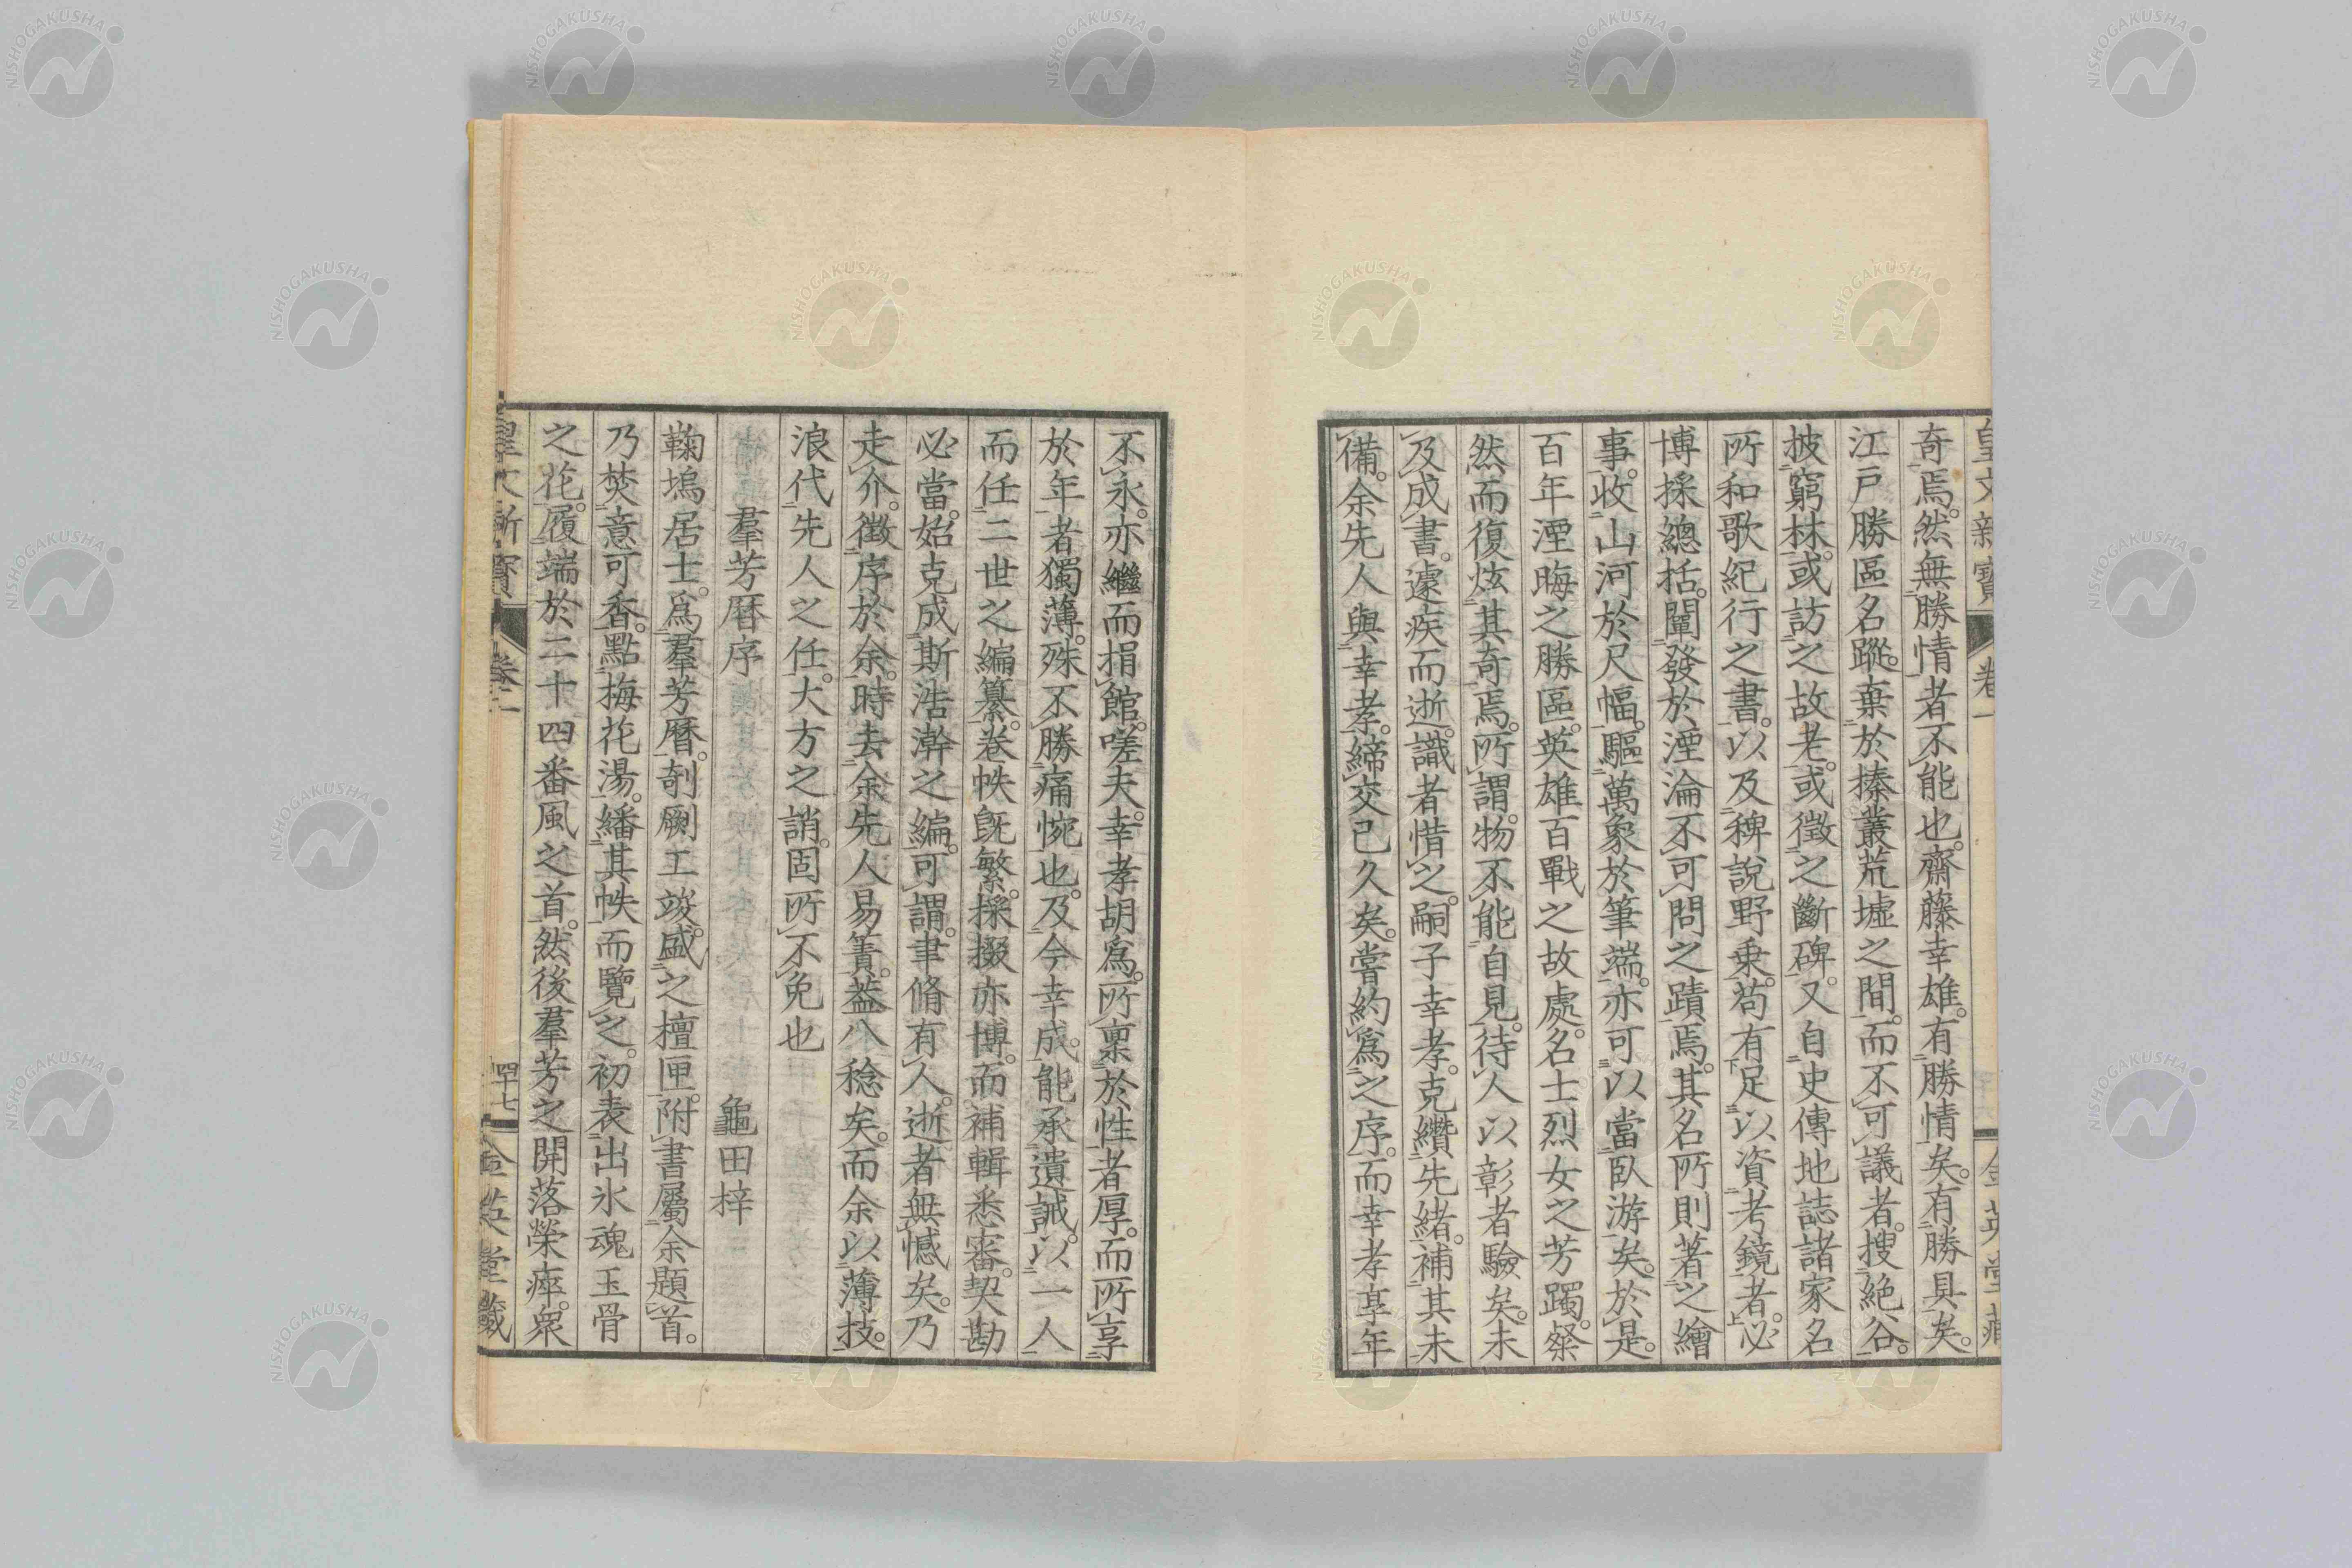 奇焉。然無勝情者不能也。齋藤幸雄。有勝情矣。有勝具矣。
江戸勝區名蹤。棄於榛叢荒墟之間。而不可議者。搜絶谷。
披窮林。或訪之故老。或徵之斷碑。又自史傳地誌諸家名
所和歌紀行之書。以及稗說野乘。苟有足以資考鏡者。必
博採總括。闡發於湮淪不可問之蹟焉。其名所則著之繪
事。收山河於尺幅。驅萬象於筆端。亦可以當臥游矣。於是。
百年湮晦之勝區。英雄百戰之故處。名士烈女之芳躅。粲
然而復炫其奇焉。所謂。物不能自見。待人以彰者驗矣。未
及成書。遽疾而逝。識者惜之。嗣子幸孝。克纘先緒。補其未
備。余先人與幸孝。締交已久矣。嘗約爲之序。而幸孝享年
不永。亦繼而捐館。嗟夫。幸孝胡爲。所稟於性者厚。而所享
於年者獨薄。殊不勝痛惋也。及今幸成。能承遺誡。以一人
而任二世之編纂。卷帙旣繁。採掇亦博。而補輯悉審。契勘
必當。始克成斯浩澣之編。可謂。聿脩有人。逝者無憾矣。乃
走介。徵序於余。時去余先人易簀。蓋八稔矣。而余以薄技。
浪代先人之任。大方之誚。固所不免也
羣芳暦序 龜田梓
鞠塢居士。爲羣芳暦。剞劂工竣。盛之檀匣。附書屬余題首。
乃焚意可香。點梅花湯。繙其帙而覽之。初表出氷魂玉骨
之花。履端於二十四番風之首。然後羣芳之開落榮瘁。衆
卷二
四十七
金英堂藏
NISHOGAKUSHA